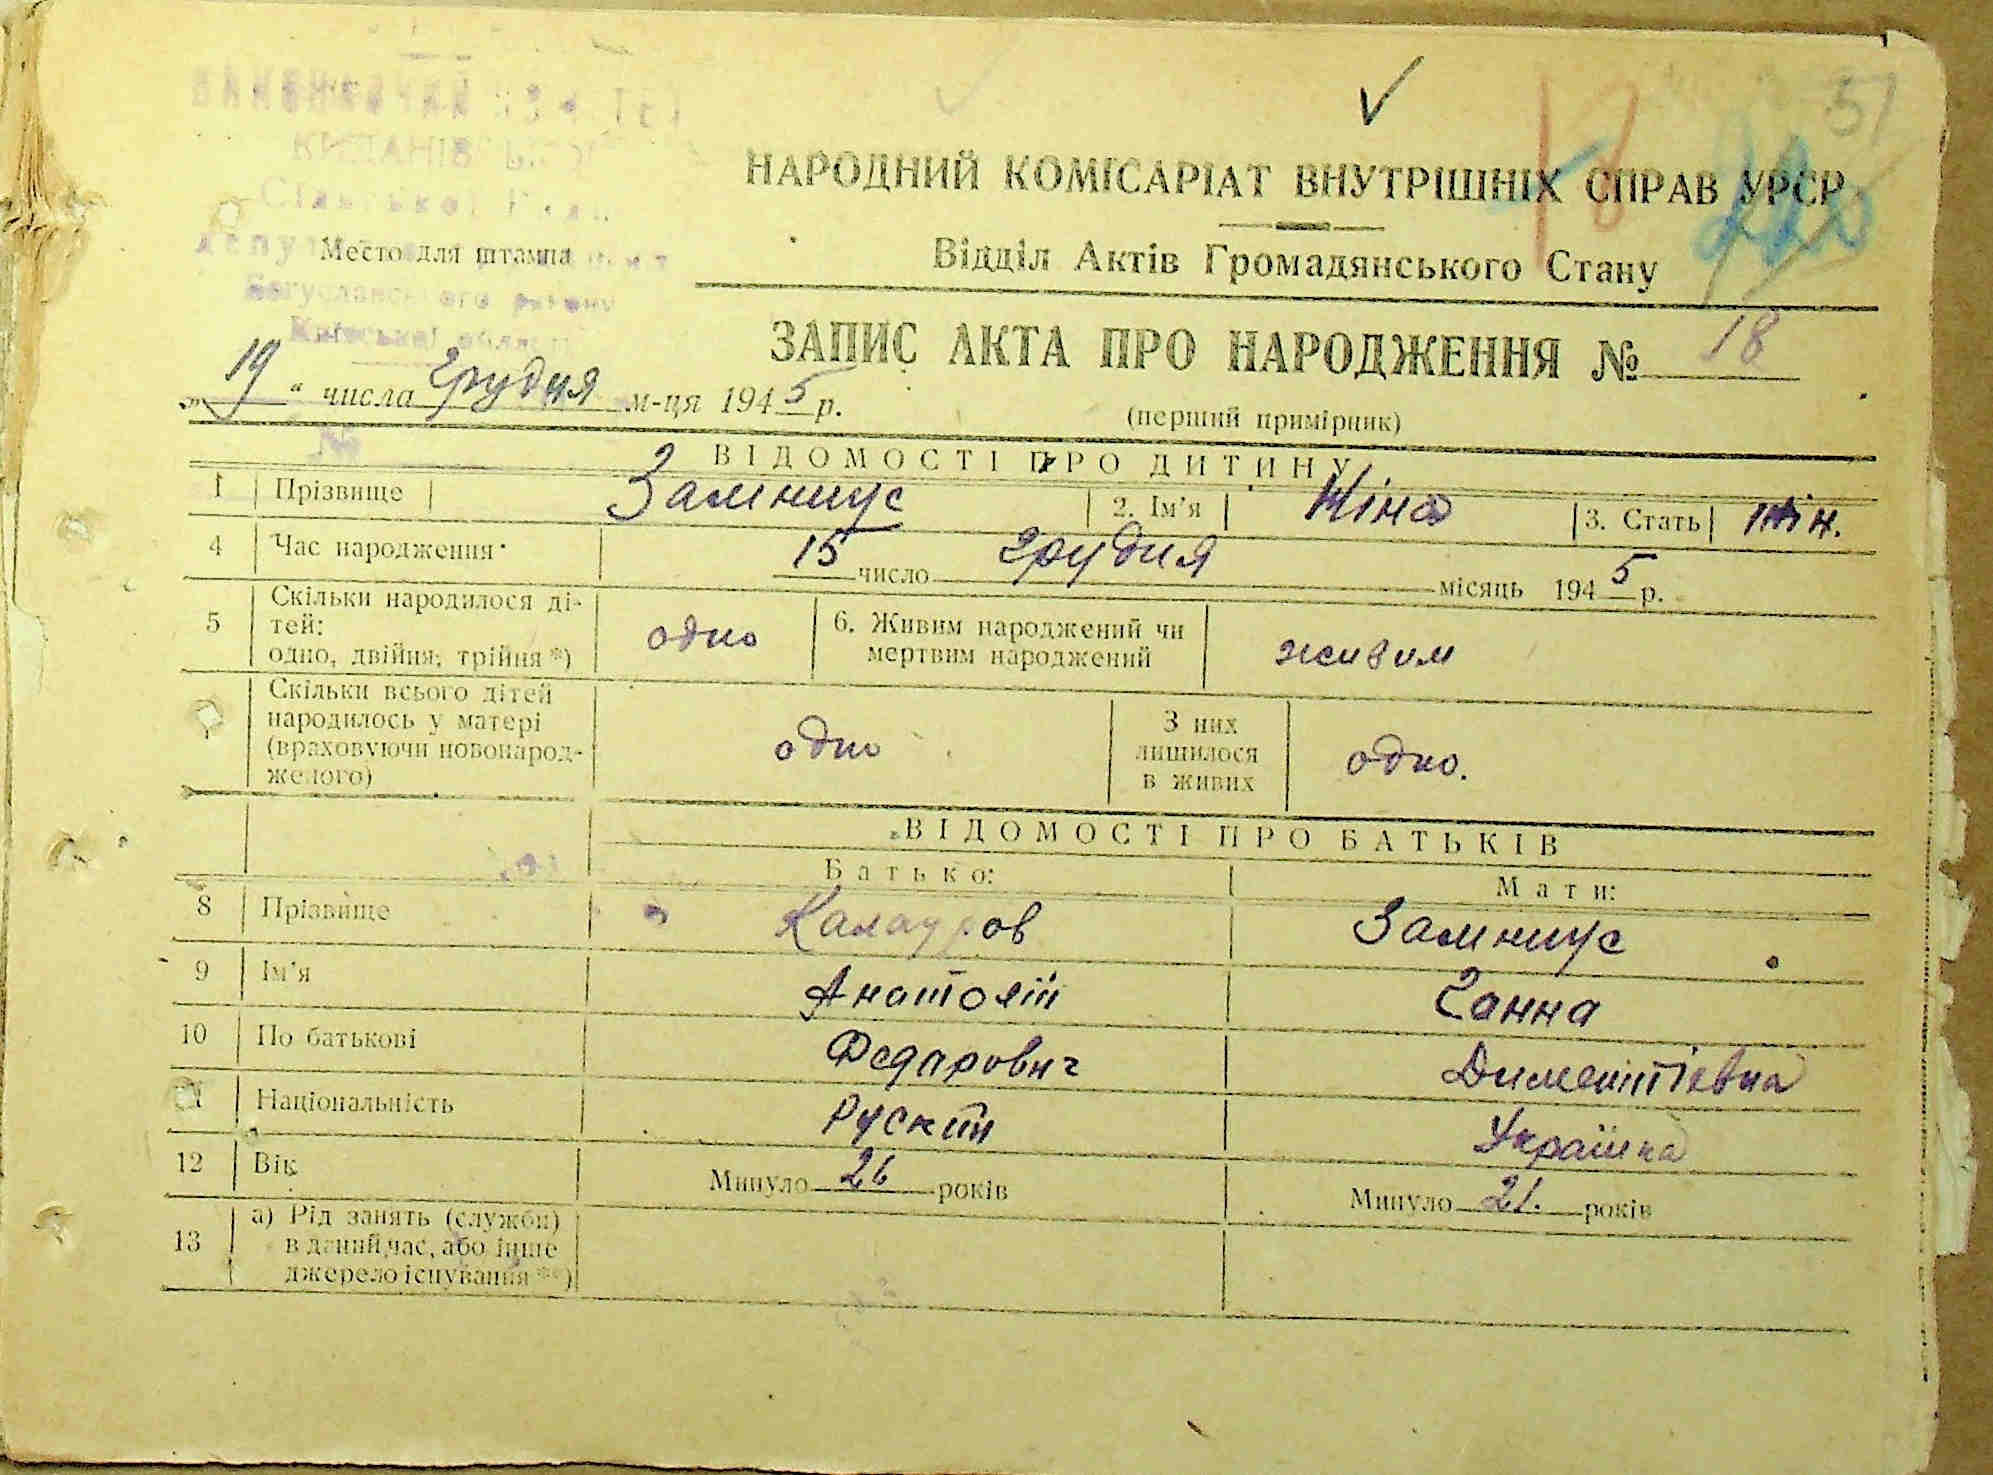 51
НАРОДНИЙ КОМІСАРІАТ ВНУТРІШНІХ СПРАВ УРСР
Сільської
Место для штампа
Відділ Актів Громадянського Стану
Богуславського району
Київської області
ЗАПИС АКТА ПРО НАРОДЖЕННЯ № 18
„19“ числа Грудня м-ця 1945 р.
(перший примірник)
№
ВІДОМОСТІ ПРО ДИТИНУ
1 Прізвище Замниус 2. Ім'я Ніна 3. Стать жін.
4 Час народження 15 число грудня місяць 1945 р.
5 Скільки народилося ді-
тей:
одно, двійня, трійня *) одно 6. Живим народжений чи
мертвим народжений живим
Скільки всього дітей
народилось у матері
(враховуючи новонарод-
женого) одно З них
лишилося
в живих одно.
ВІДОМОСТІ ПРО БАТЬКІВ
Батько: Мати:
8 Прізвище Замниус
9 Ім'я Анатолій Ганна
10 По батькові Федарович Диментіевна
11 Національність Руский Українка
12 Вік Минуло 26 років Минуло 21. років
13 а) Рід занять (служби)
в даний час, або інше
джерело існування **)